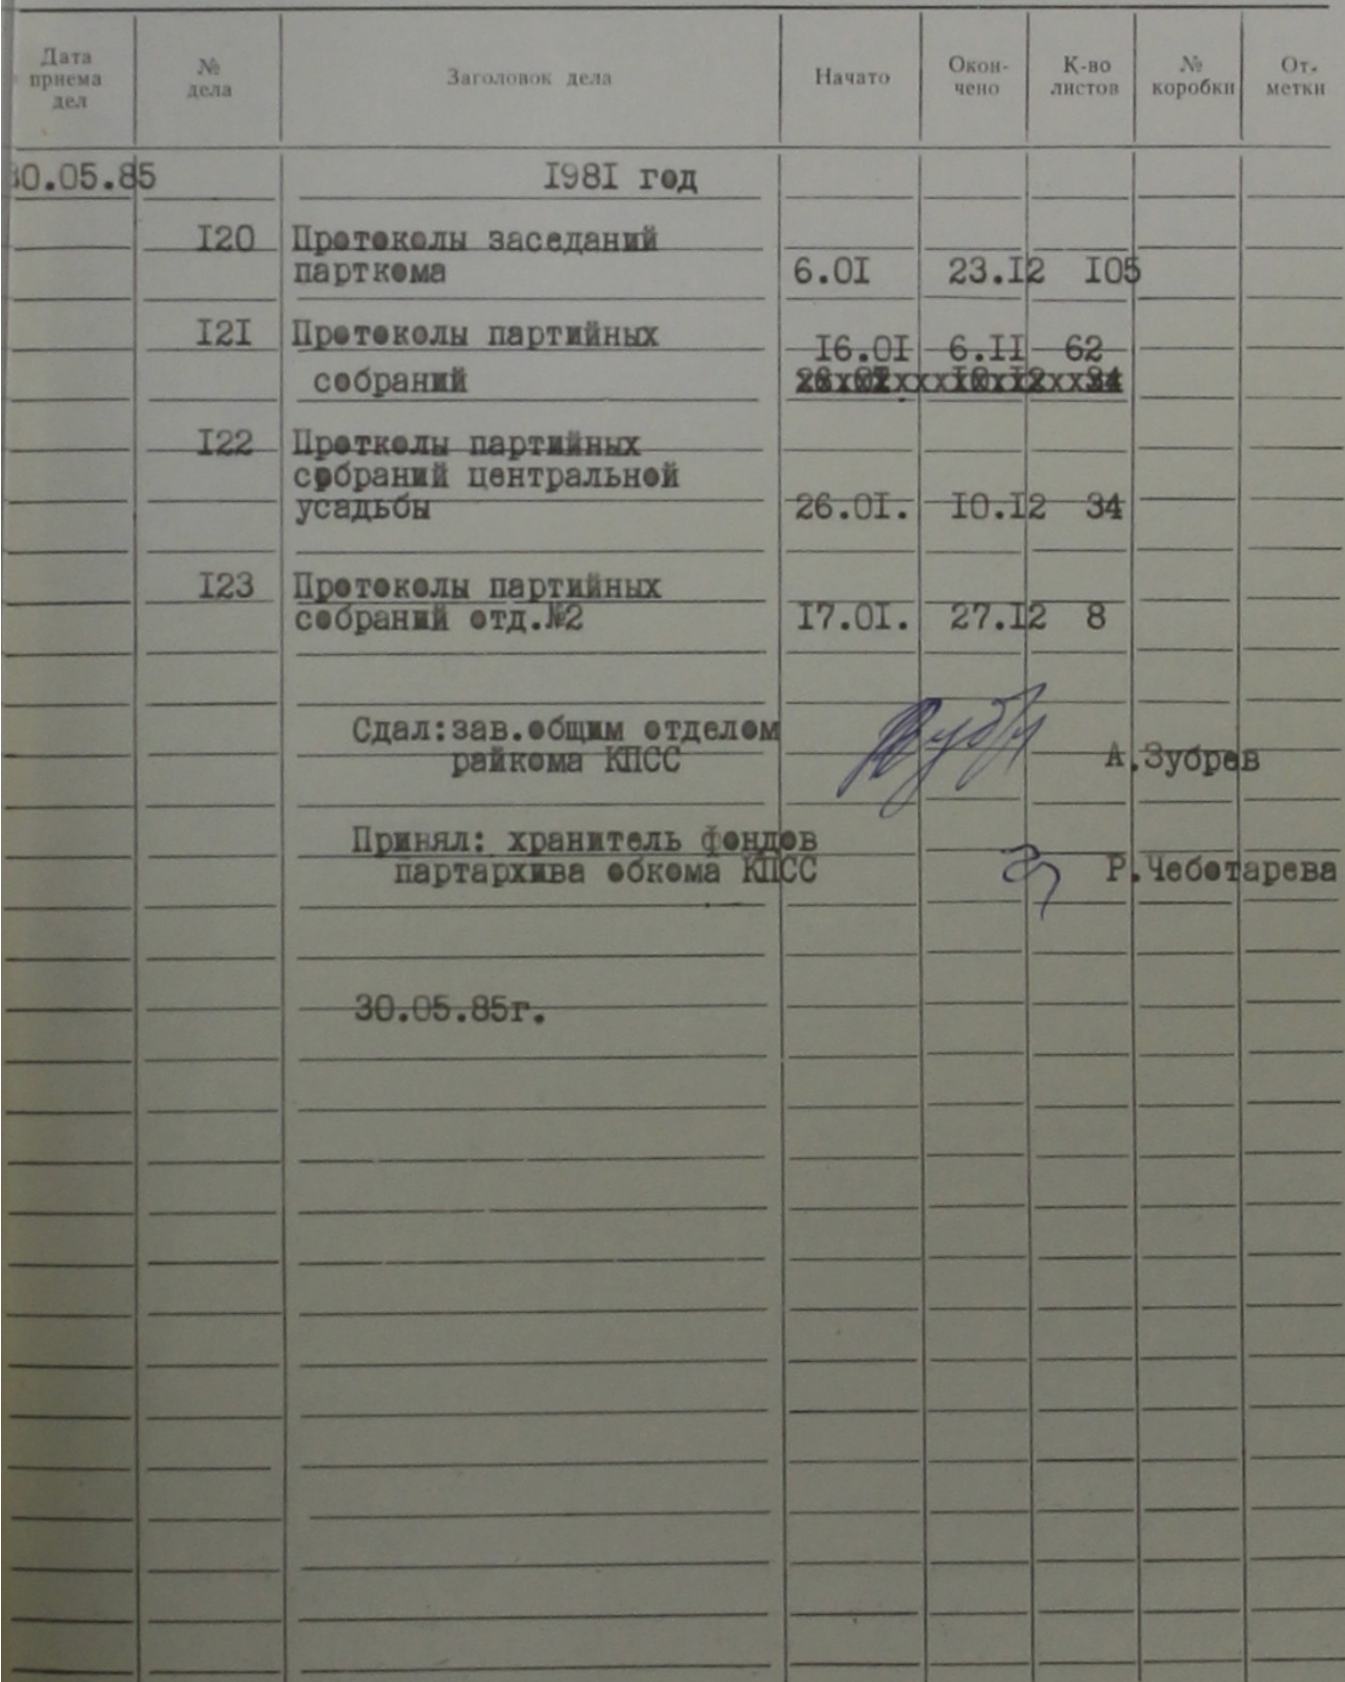 Дата приема дел № дела Заголовок дела Начато Окон-чено К-во листов № коробки От-метки
30.05.85 1981 год
120 Протоколы заседаний
парткома 6.01 23.12 105
121 Протоколы партийных
16.01 6.11 62
собраний
122 Протколы партийных
собраний центральной
усадьбы 26.01. 10.12 34
123 Протоколы партийных
собраний отд.№2 17.01. 27.12 8
Сдал:зав.общим отделом
райкома КПСС А.Зубрев
Принял: хранитель фондов
партархива обкома КПСС Р.Чеботарева
30.05.85г.